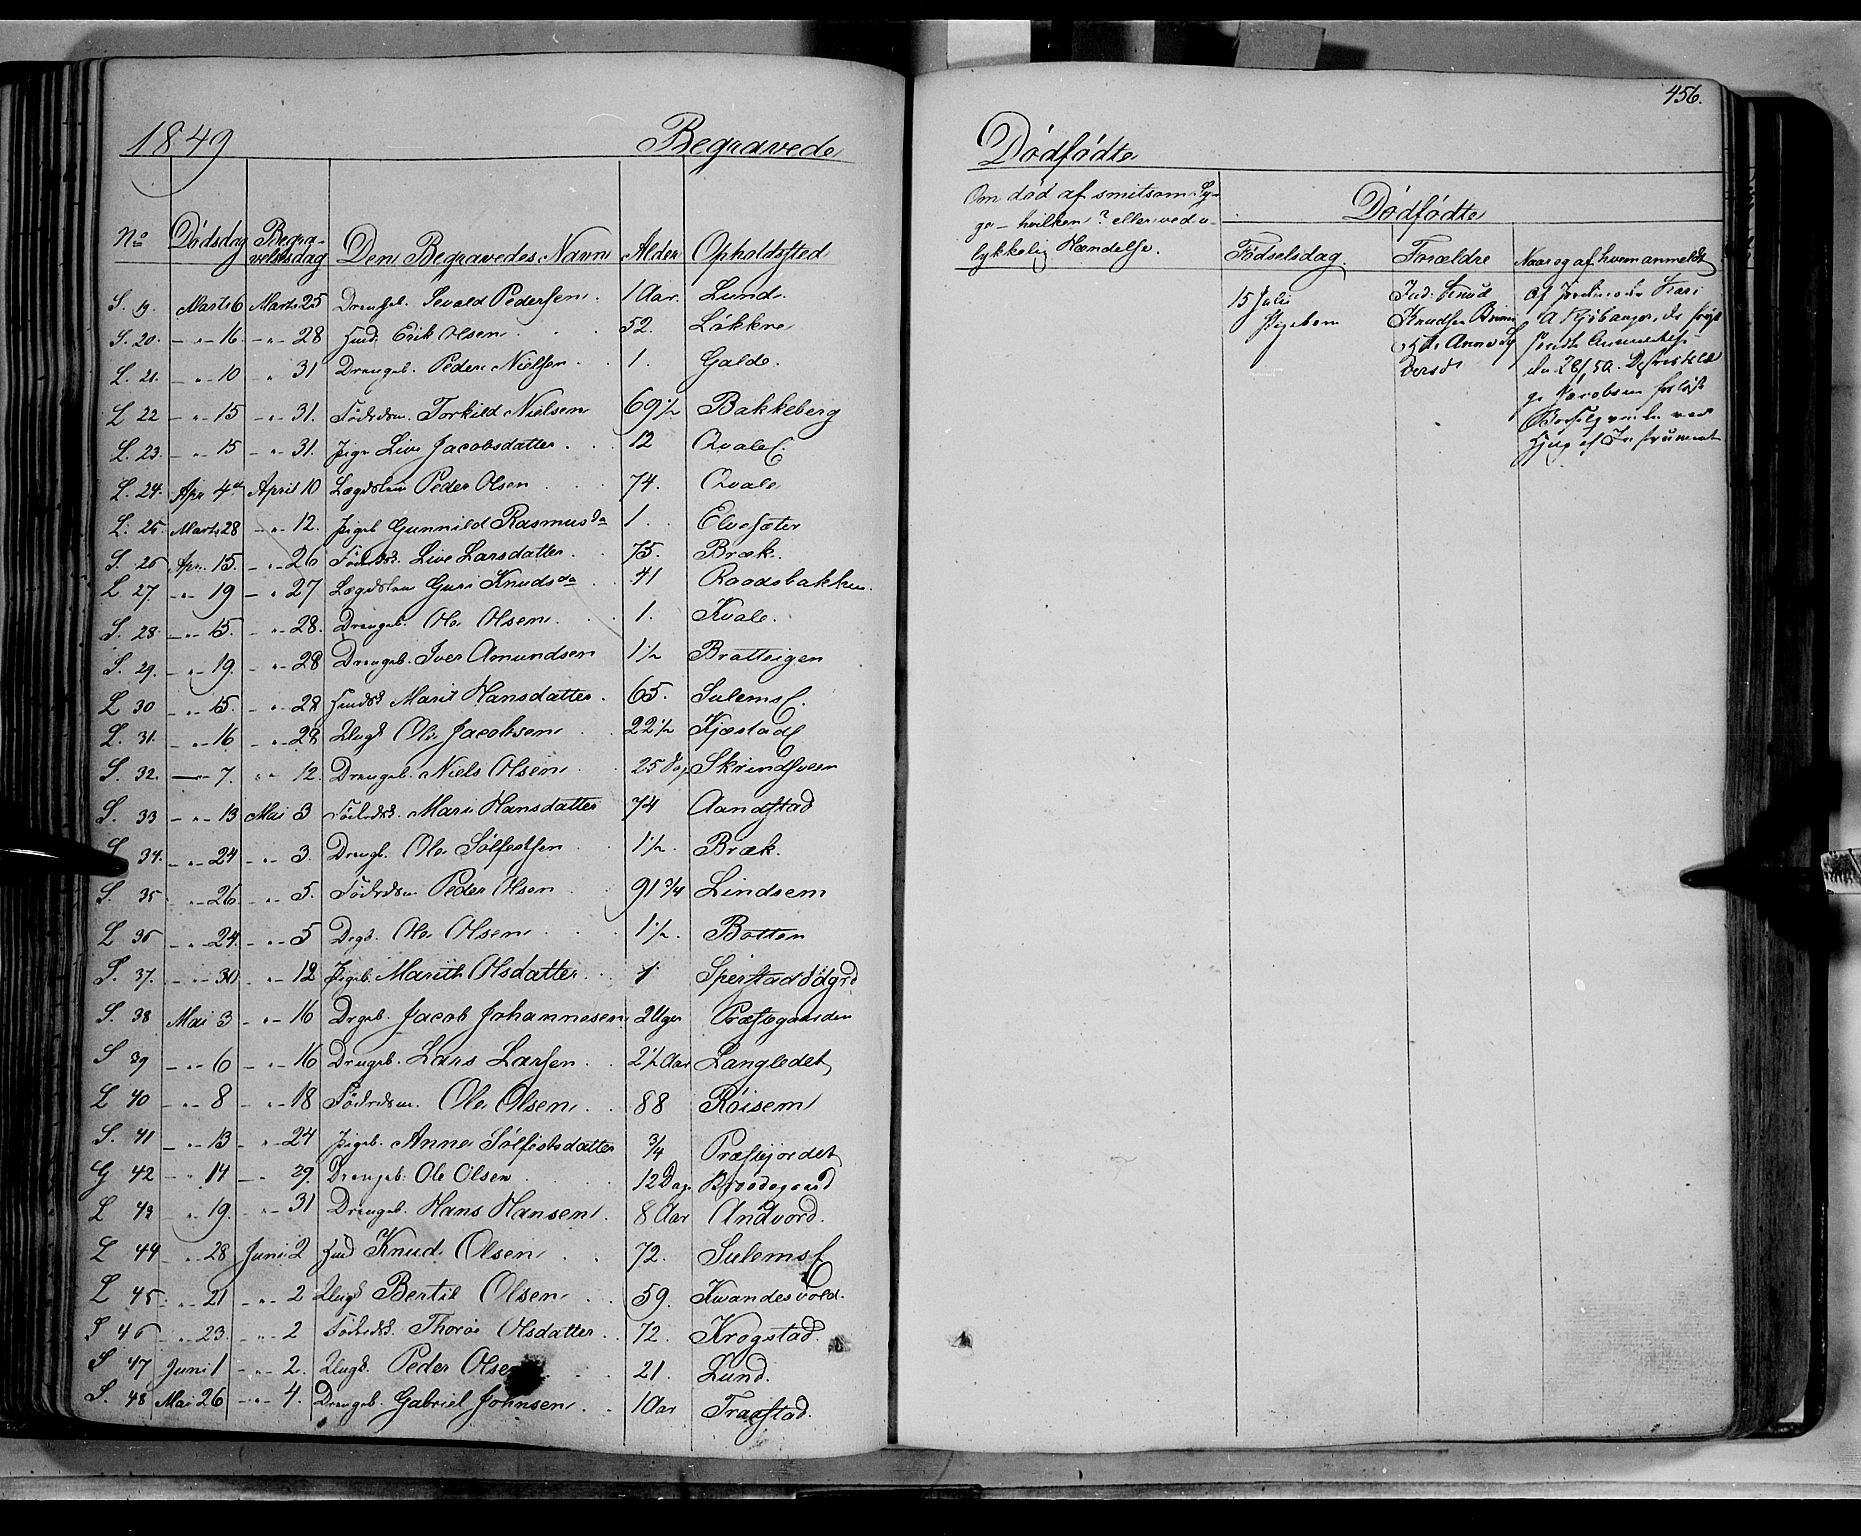 1849 Begravede
No Dødsdag Begravelsesdag Den Begravedes Navn Alder Opholdssted
S. 19. Marts 6 Marts 25 Drengeb. Sevald Pedersen. 1 Aar. Lund.
S. 20. - " 16. - " 28 Huusd. Erik Olsen 52. Løkkre
L. 21. - " 10 - " 31 Drengeb. Peder Nielsen 1. Galde.
L 22 - " 15 - " 31. Føderdm. Torkild Nielsen 69 1/2 Bakkeberg
L. 23. - " 15 - " 31. Pige Live Jacobsdatter 12 Qvale
L. 24. Apr 4de April 10 Lægdslem Peder Olsen 74. Qvale
L. 25 Marts 28 - " 12. Pigeb Gunnild Rasmusda 1. Elvesæter
S. 26 Apr. 15. - " 26 Føderdk. Live Larsdatter. 75. Bræk.
L 27. " 19 - " 27 Lægdslem Guri Knudsda 41 Raadsbakken.
S. 28. - " 15. - " 28. Drengeb. Ole Olsen 1. Kvale.
S. 29. - " 19. - " 28 Drengeb. Iver Amundsen 1 1/2 Bratteigen
L 30 - " 15. - " 28 Huusk Marit Hansdatter. 65. Sulems
L. 31. - " 16 - " 28 Ungk Ole Jacobsen 22 1/2 Kjæstad
S. 32. - 7. " 12. Drengeb. Niels Olsen 25 Dag Skrindsveen
S. 33 - " 13 Mai 3 Føderdk. Mari Hansdatter 74 Aandstad
L 34. - " 24 - " 3. Drengb. Ole Sølfestsen 1 1/2. Bræk.
S. 35 - " 26. - " 5. Føderdm Peder Olsen 91 3/4 Lindsem
L 36 - " 24. - " 5 Drgb. Ole Olsen 1 1/2. Botten
S. 37. - " 30 - " 12 Pigeb. Marith Olsdatter 1 Sperstadødgrd
S. 38 Mai 3 - " 16 Drgeb. Jacob Johannesen 2 Uger Præstegaarden
S 39 - " 6 - " 16 Drengeb. Lars Larsen 2 1/2 Aar Langledet
L 40 - " 8 - " 18 Føderdm. Ole Olsen 88 Røisem
S. 41 - " 13 - " 24 Pigeb. Anne Sølfestsdatter 3/4 Præstjordet
G 42 - " 14 - " 29. Drengeb. Ole Olsen 12 Dage
L 43 " 19. - " 31 Drengeb. Hans Hansen. 8 Aar Andvord.
L 44 " 28 Juni 2 Huusd Knud Olsen 72. Sulems
L 45. " 21 - " 2 Ungk Bertil Olsen 59. Kvandesvold.
S 46 " 23. - " 2 Føderdk. Thorø Olsdatter. 72. Krogstad.
S 47 Juni 1 - " 2. Ungk. Peder Olsen 21. Lund.
S. 48 Mai 26 - " 4. Drengeb. Gabriel Johnsen 1 Aar Træstad.
456.
Dødfødte
Om død af smitsom Sy-
ge - hvilken? eller ved u-
lykkelig Hændelse.
Dødfødte
Fødselsdag. Forældre Naar og af hvem anmeldt
15 Juli
Pigebarn
Ind. Knud
Knudsen
af Jordmoder Kari